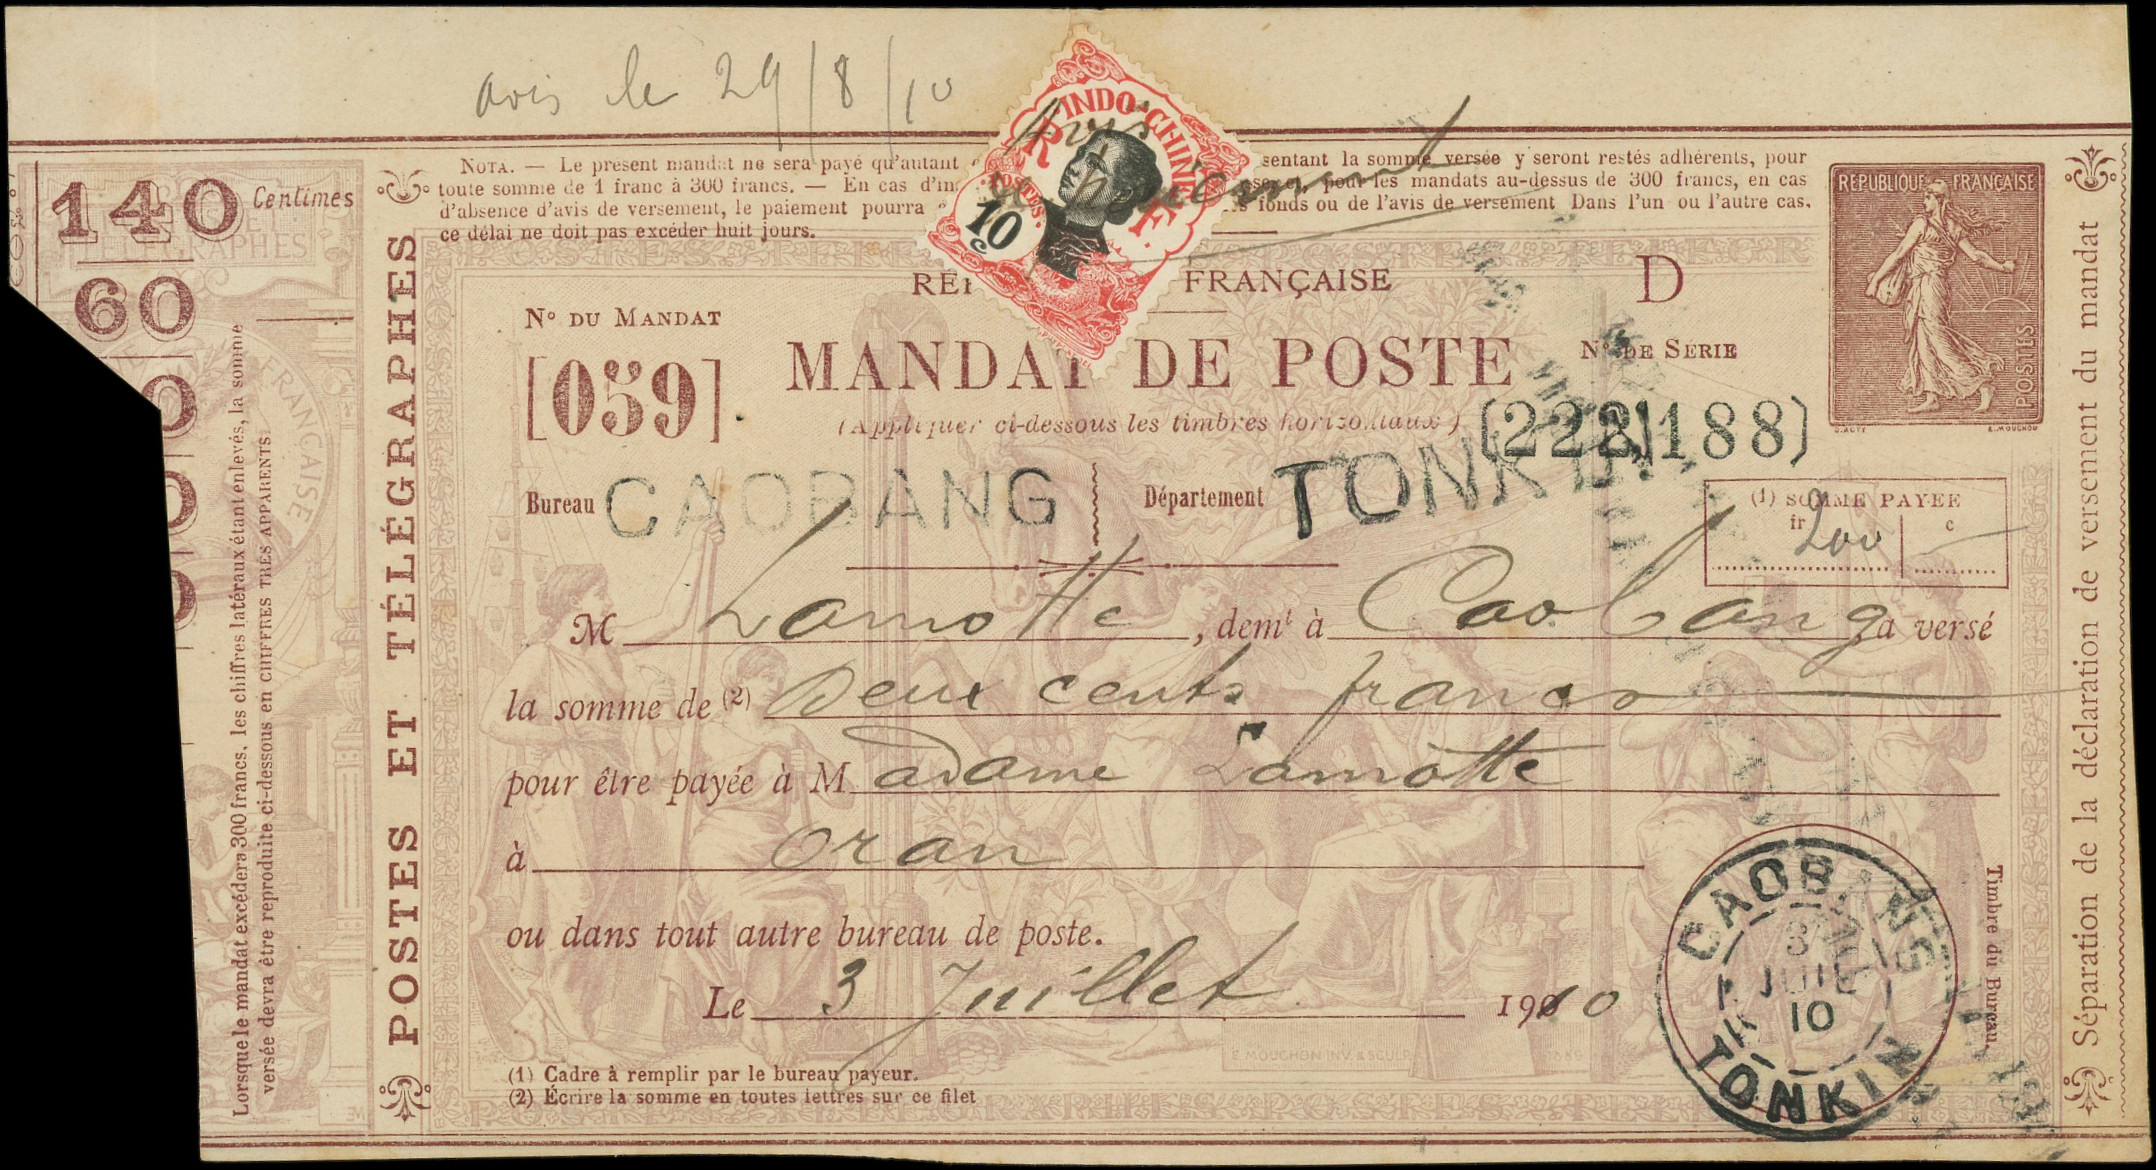 avis le 29/8/10
INDO-CHINE
R
F.
POSTES
10
c
Avis
de paiement
140 Centimes
60
NOTA. — Le présent mandat ne sera payé qu'autant
sentant la somme versée y seront restés adhérents, pour
toute somme de 1 franc à 300 francs. — En cas d'in
pour les mandats au-dessus de 300 francs, en cas
d'absence d'avis de versement, le paiement pourra
fonds ou de l'avis de versement Dans l'un ou l'autre cas,
ce délai ne doit pas excéder huit jours.
REPUBLIQUE FRANÇAISE
POSTES
O.ROTY
E.MOUCHON
FRANÇAISE
D
N° DU MANDAT
[059]
MANDAT DE POSTE
N° DE SERIE
(222)188)
(Appliquer ci-dessous les timbres horizontaux)
Bureau CAOBANG
Département TONKIN
(1) SOMME PAYEE
fr c
200
M Lamotte, demt à Caobang a versé
la somme de (2) Deux cents francs
pour être payée à M adame Lamotte
à Oran
ou dans tout autre bureau de poste.
Le 3 Juillet 1910
CAOBANG
3
JUIL
10
TONKIN
Timbre du Bureau.
E. MOUCHON INV. & SCULP.
(1) Cadre à remplir par le bureau payeur.
(2) Écrire la somme en toutes lettres sur ce filet
POSTES ET TÉLÉGRAPHES
Lorsque le mandat excédera 300 francs, les chiffres latéraux étant enlevés, la somme
versée devra être reproduite ci-dessous en CHIFFRES TRÈS APPARENTS:
Séparation de la déclaration de versement du mandat